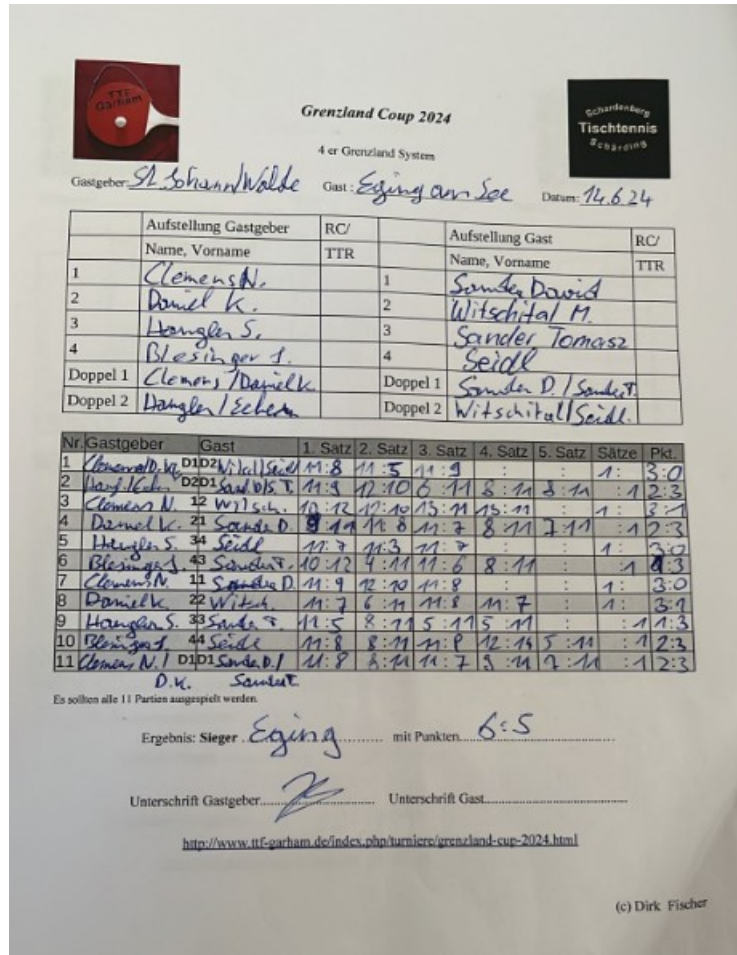 TTF
Garham
Grenzland Coup 2024
Schardenberg
Tischtennis
Schärding
4 er Grenzland System
Gastgeber: St. Johann/Walde Gast: Eging am See Datum: 14.6.24
Aufstellung Gastgeber RC/ Aufstellung Gast RC/
Name, Vorname TTR Name, Vorname TTR
1 Clemens N. 1 Sander David
2 Daniel K. 2 Witschital M.
3 Hangler S. 3 Sander Tomasz
4 Blesinger J. 4 Seidl
Doppel 1 Clemens/Daniel K. Doppel 1 Sander D./Sander T.
Doppel 2 Hangler/ Doppel 2 Witschital/Seidl.
Nr. Gastgeber Gast 1. Satz 2. Satz 3. Satz 4. Satz 5. Satz Sätze Pkt.
1 Clemens/D.K. D1D2 /Seidl 11:8 11:5 11:9 : : 1: 3:0
2 D2D1 11:9 12:10 6:11 8:11 8:11 :1 2:3
3 Clemens N. 12 Witsch. 10:12 12:10 13:11 13:11 : 1: 3:1
4 Daniel K. 21 Sander D. 9:11 11:8 11:7 8:11 7:11 :1 2:3
5 Hangler S. 34 Seidl 11:7 11:3 11:7 : : 1: 3:0
6 Blesinger J. 43 Sander T. 10:12 4:11 11:6 8:11 : :1 1:3
7 Clemens N. 11 Sander D. 11:9 12:10 11:8 : : 1: 3:0
8 Daniel K. 22 Witsch. 11:7 6:11 11:8 11:7 : 1: 3:1
9 Hangler S. 33 Sander T. 11:5 8:11 5:11 5:11 : :1 1:3
10 Blesinger J. 44 Seidl 11:8 8:11 11:9 12:14 5:11 :1 2:3
11 Clemens N./ D1D1 Sander D./ 11:8 8:11 11:7 9:11 7:11 :1 2:3
D.K. Sander T.
Es sollten alle 11 Partien ausgespielt werden.
Ergebnis: Sieger Eging mit Punkten 6:5
Unterschrift Gastgeber Unterschrift Gast
http://www.ttf-garham.de/index.php/turniere/grenzland-cup-2024.html
(c) Dirk Fischer